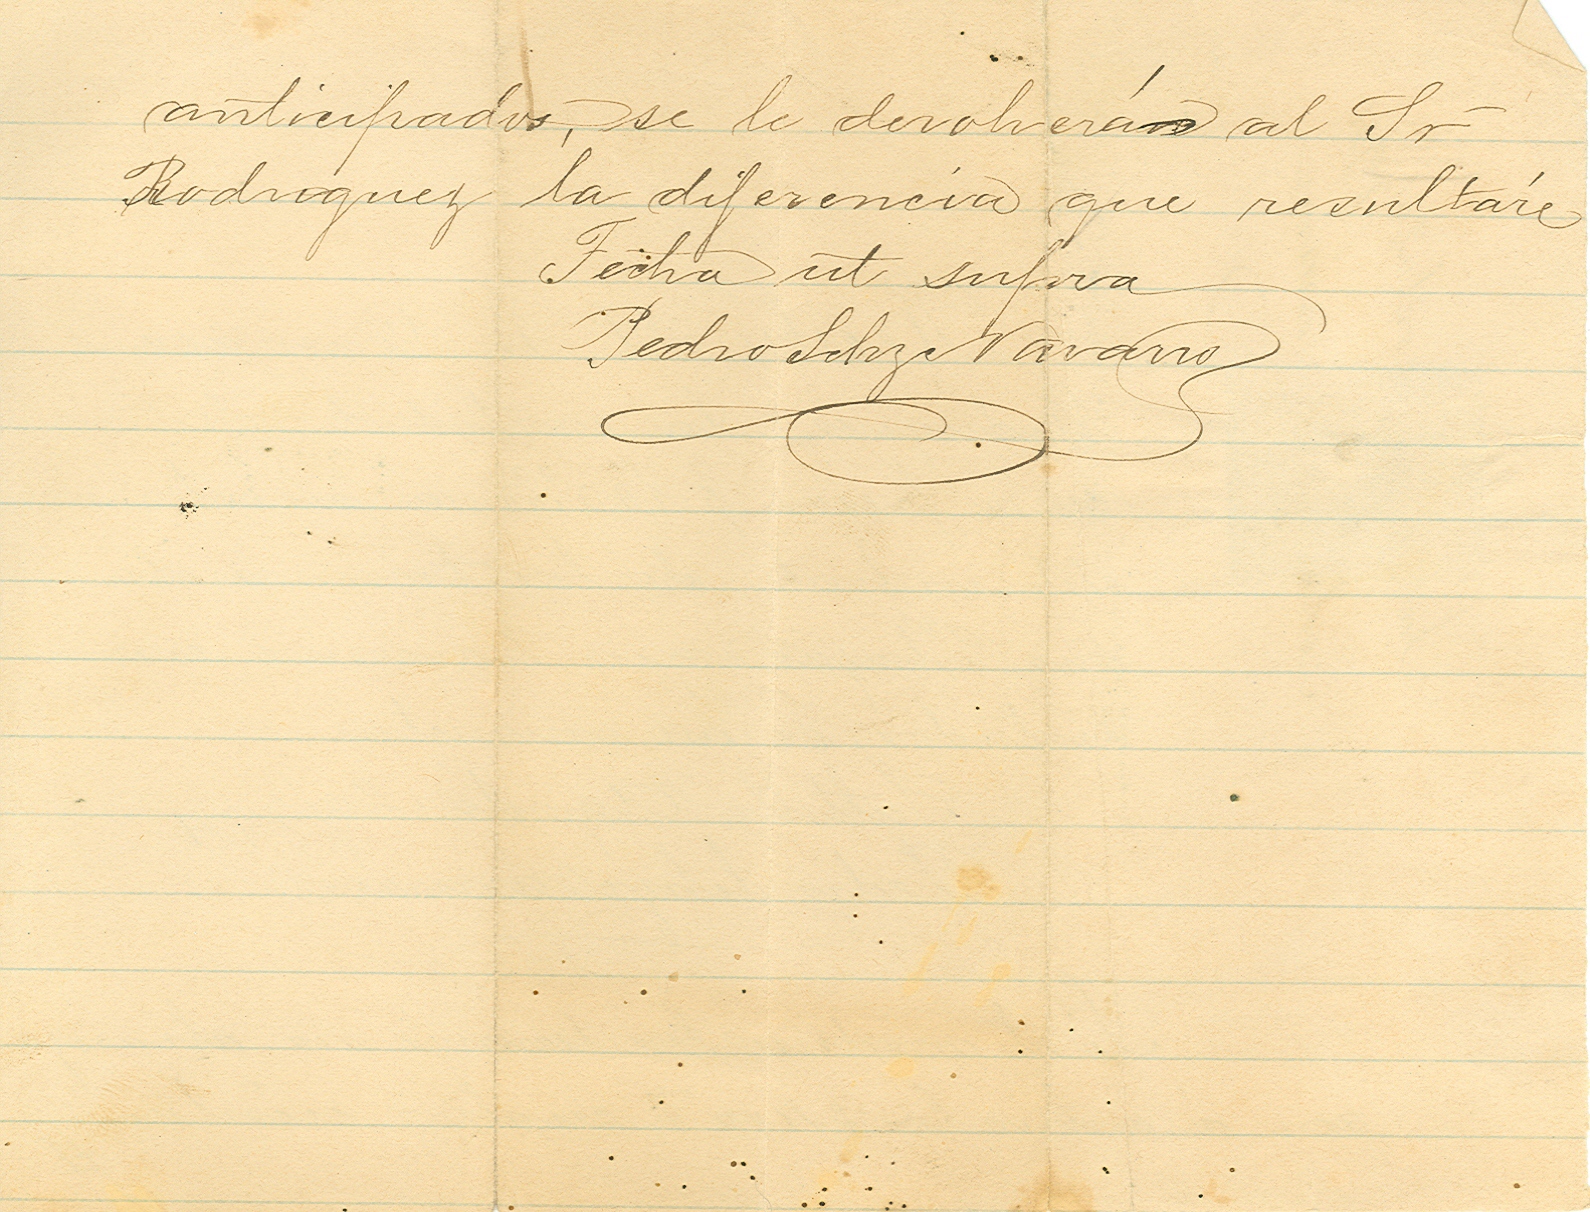 anticipados, se le devolverá al Sr
Rodriguez la diferencia que resultáre
Fecha ut supra
Pedro Schz Navarro